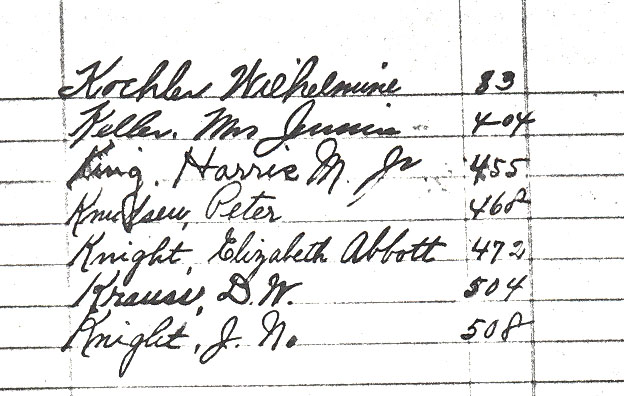 Kochler Wilhelmine 83
Keller, Mrs Jennie 404
King, Harris M. Jr 455
Knudsen, Peter 468
Knight, Elizabeth Abbott 472
Krause, D.W. 504
Knight, J. N. 508